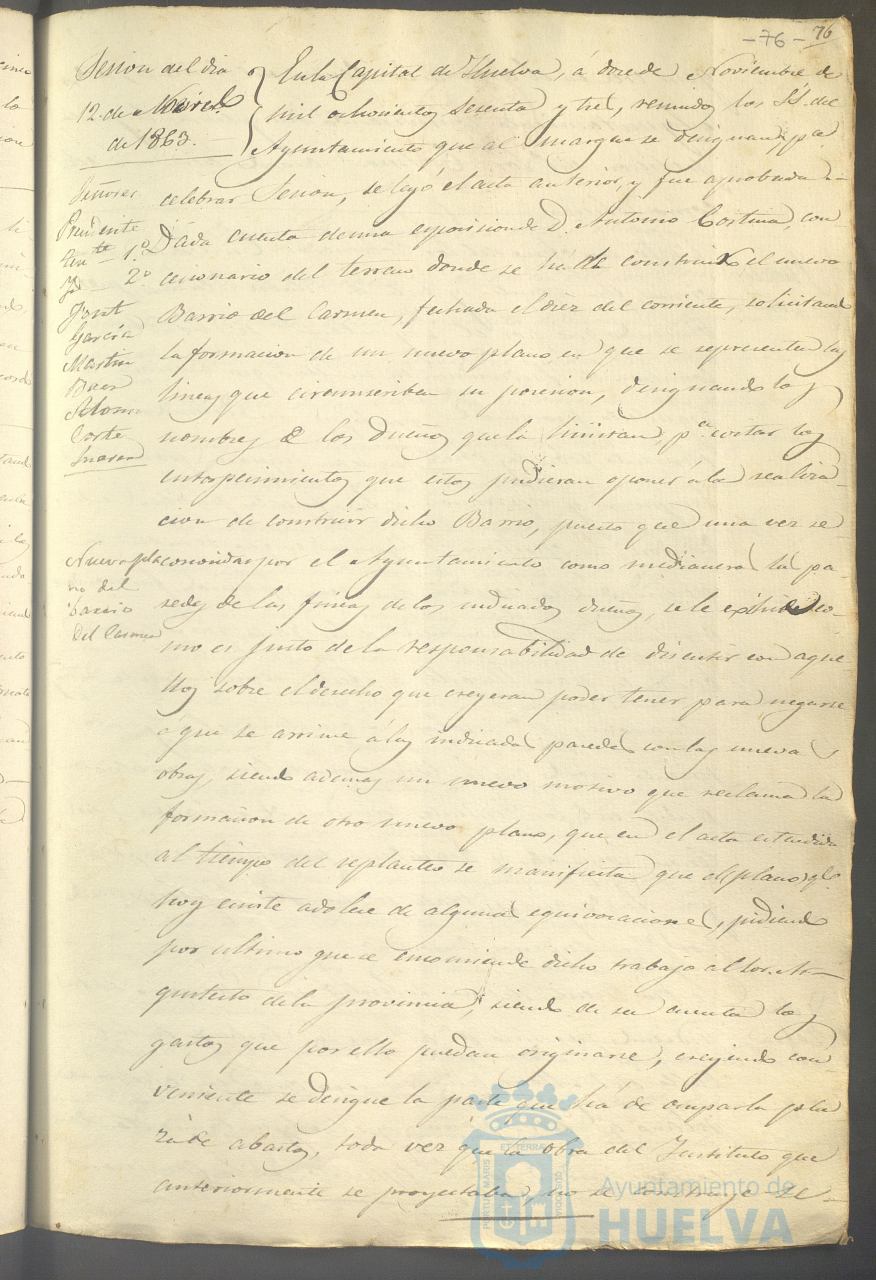 -76- 76
Sesion del dia
12. de Novierb.
de 1863.
Señores
Presidente
Tente 1.º
Yd 2.º
Font
Garcia
Martin
Baer
Corte
Suarez
Nuevo pla
no del
Barrio
del Carmen
En la Capital de Huelva, á doce de Noviembre de
mil ochocientos sesenta y tres, reunidos los SS. del
Ayuntamiento que al margen se designan, pa
celebrar Sesion, se leyó el acta anterior, y fue aprobada
Dada cuenta de una esposision de D. Antonio Cortina, con
cesionario del terreno donde se ha de construir el nuevo
Barrio del Carmen, fechada el diez del corriente, solicitando
la formacion de un nuevo plano en que se representen las
lineas que circunscriben su posesion, designando los
nombres de los Dueños que la limitan, pa. evitar los
entorpecimientos que estos pudieran oponer á la realiza-
cion de construir dicho Barrio, puesto que una vez se
conocidas por el Ayuntamiento como medianeras las pa-
redes de las fincas de los indicados dueños, se le exhime co-
mo es justo de la responsabilidad de discutir con aque
llos sobre el derecho que creyeran poder tener para negarse
a que se arrime á las indicadas paredes con las nuevas
obras, siendo ademas un nuevo motivo que reclama la
formacion de otro nuevo plano, que en el acta estendida
al tiempo del replanteo se manifiesta que el plano qe.
hoy existe adolece de algunas equivocaciones, pidiendo
por ultimo que se encomiende dicho trabajo al Sor. Ar-
quitecto de la provincia, siendo de su cuenta los
gastos que por ello puedan originarse, creyendo con
veniente se designe la parte que há de ocupar la pla
za de abastos, toda vez que la obra del Instituto que
anteriormente se proyectaba no se construye
PORTUS MARIS
ET TERRAE
CUSTODIA
Ayuntamiento de
HUELVA